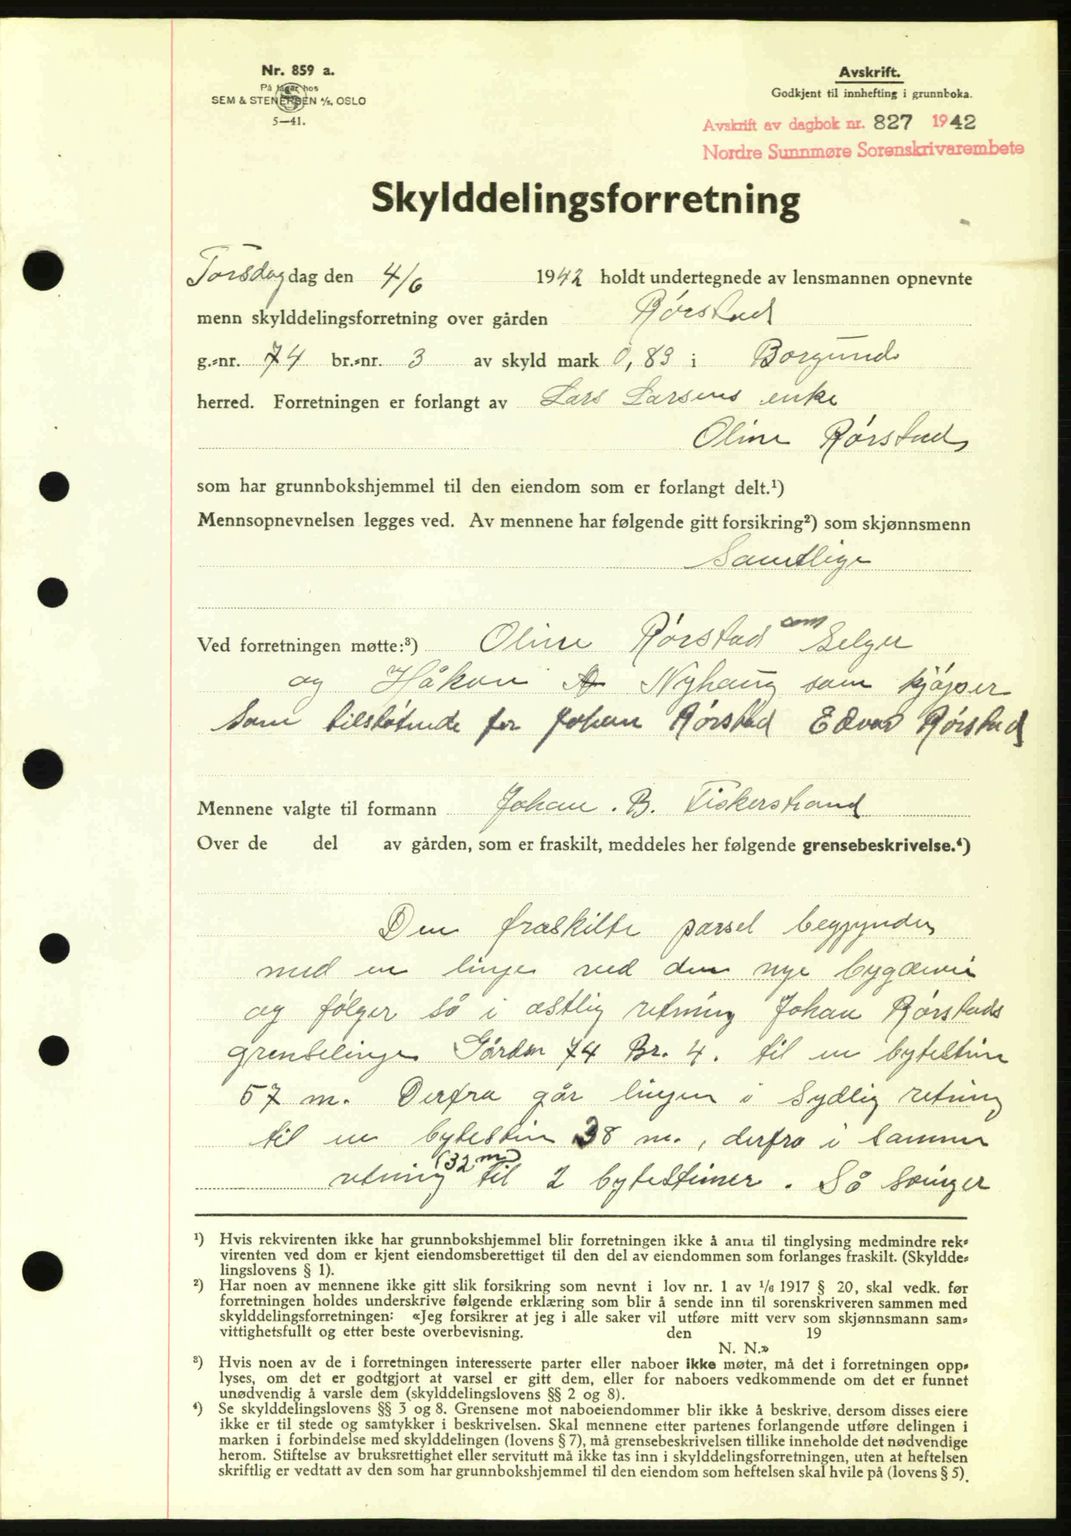 Nr. 859 a.
På lager hos
SEM & STENERSEN A/S, OSLO
5—41.
Avskrift.
Godkjent til innhefting i grunnboka.
Avskrift av dagbok nr. 827 1942
Nordre Sunnmøre Sorenskrivarembete
Skylddelingsforretning
Torsdag dag den 4/6 1942 holdt undertegnede av lensmannen opnevnte
menn skylddelingsforretning over gården Rørstad
g.=nr. 74 br.=nr. 3 av skyld mark 0,89 i Borgund
herred. Forretningen er forlangt av Lars Larsens enke
Oline Rørstad
som har grunnbokshjemmel til den eiendom som er forlangt delt.¹)
Mennsopnevnelsen legges ved. Av mennene har følgende gitt forsikring²) som skjønnsmenn
Samtlige
Ved forretningen møtte:³) Oline Rørstad som Selger
og Håkon Nyhaug som kjøper
Som tilstøtende for Johan Rørstad Edvar Rørstad
Mennene valgte til formann Johan . B. Fiskerstrand
Over de del av gården, som er fraskilt, meddeles her følgende grensebeskrivelse.⁴)
Den fraskilte parsel begynder
med en linje ved den nye bygdevei
og følger så i østlig retning Johan Rørstads
grenselinje Gårdsn 74 Br. 4. til en bytestein
57 m. Derfra går linjen i Sydlig retning
til en bytestein 38 m., derfra i samme
retning (32 m) til 2 bytesteiner. Så svinger
¹) Hvis rekvirenten ikke har grunnbokshjemmel blir forretningen ikke å anta til tinglysing medmindre rek=
virenten ved dom er kjent eiendomsberettiget til den del av eiendommen som forlanges fraskilt. (Skyldde=
lingslovens § 1).
²) Har noen av mennene ikke gitt slik forsikring som nevnt i lov nr. 1 av 1/6 1917 § 20, skal vedk. før
forretningen holdes underskrive følgende erklæring som blir å sende inn til sorenskriveren sammen med
skylddelingsforretningen: «Jeg forsikrer at jeg i alle saker vil utføre mitt verv som skjønnsmann sam=
vittighetsfullt og etter beste overbevisning. den 19
N. N.»
³) Hvis noen av de i forretningen interesserte parter eller naboer ikke møter, må det i forretningen opp=
lyses, om det er godtgjort at varsel er gitt dem, eller for naboers vedkommende om det er funnet
unødvendig å varsle dem (skylddelingslovens §§ 2 og 8).
⁴) Se skylddelingslovens §§ 3 og 8. Grensene mot naboeiendommer blir ikke å beskrive, dersom disses eiere
ikke er til stede og samtykker i beskrivelsen. Skal mennene etter partenes forlangende utføre delingen i
marken i forbindelse med skylddelingen (lovens § 7), må grensebeskrivelsen tillike inneholde det nødvendige
herom. Stiftelse av bruksrettighet eller servitutt må ikke tas inn i skylddelingsforretningen, uten at heftelsen
skriftlig er vedtatt av den som har grunnbokshjemmel til den eiendom som heftelsen skal hvile på (lovens § 5).